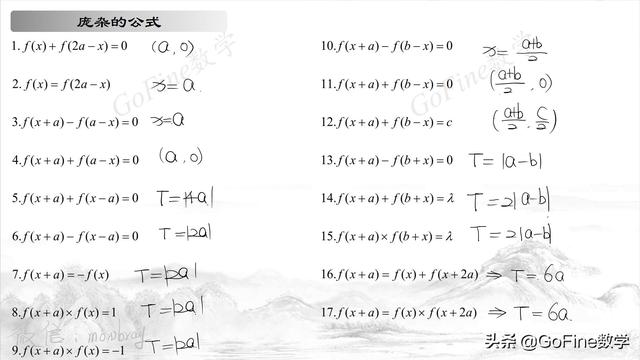 庞杂的公式
1. f(x)+f(2a−x)=0 (a,0)
2. f(x)=f(2a−x) x=a
3. f(x+a)−f(a−x)=0 x=a
4. f(x+a)+f(a−x)=0 (a,0)
5. f(x+a)+f(x−a)=0 T=|4a|
6. f(x+a)−f(x−a)=0 T=|2a|
7. f(x+a)=−f(x) T=|2a|
8. f(x+a)×f(x)=1 T=|2a|
9. f(x+a)×f(x)=−1 T=|2a|
10. f(x+a)−f(b−x)=0 x=(a+b)/2
11. f(x+a)+f(b−x)=0 ((a+b)/2,0)
12. f(x+a)+f(b−x)=c ((a+b)/2,c/2)
13. f(x+a)−f(b+x)=0 T=|a−b|
14. f(x+a)+f(b+x)=λ T=2|a−b|
15. f(x+a)×f(b+x)=λ T=2|a−b|
16. f(x+a)=f(x)+f(x+2a) ⇒ T=6a
17. f(x+a)=f(x)×f(x+2a) ⇒ T=6a.
GoFine数学
GoFine数学
头条 @GoFine数学